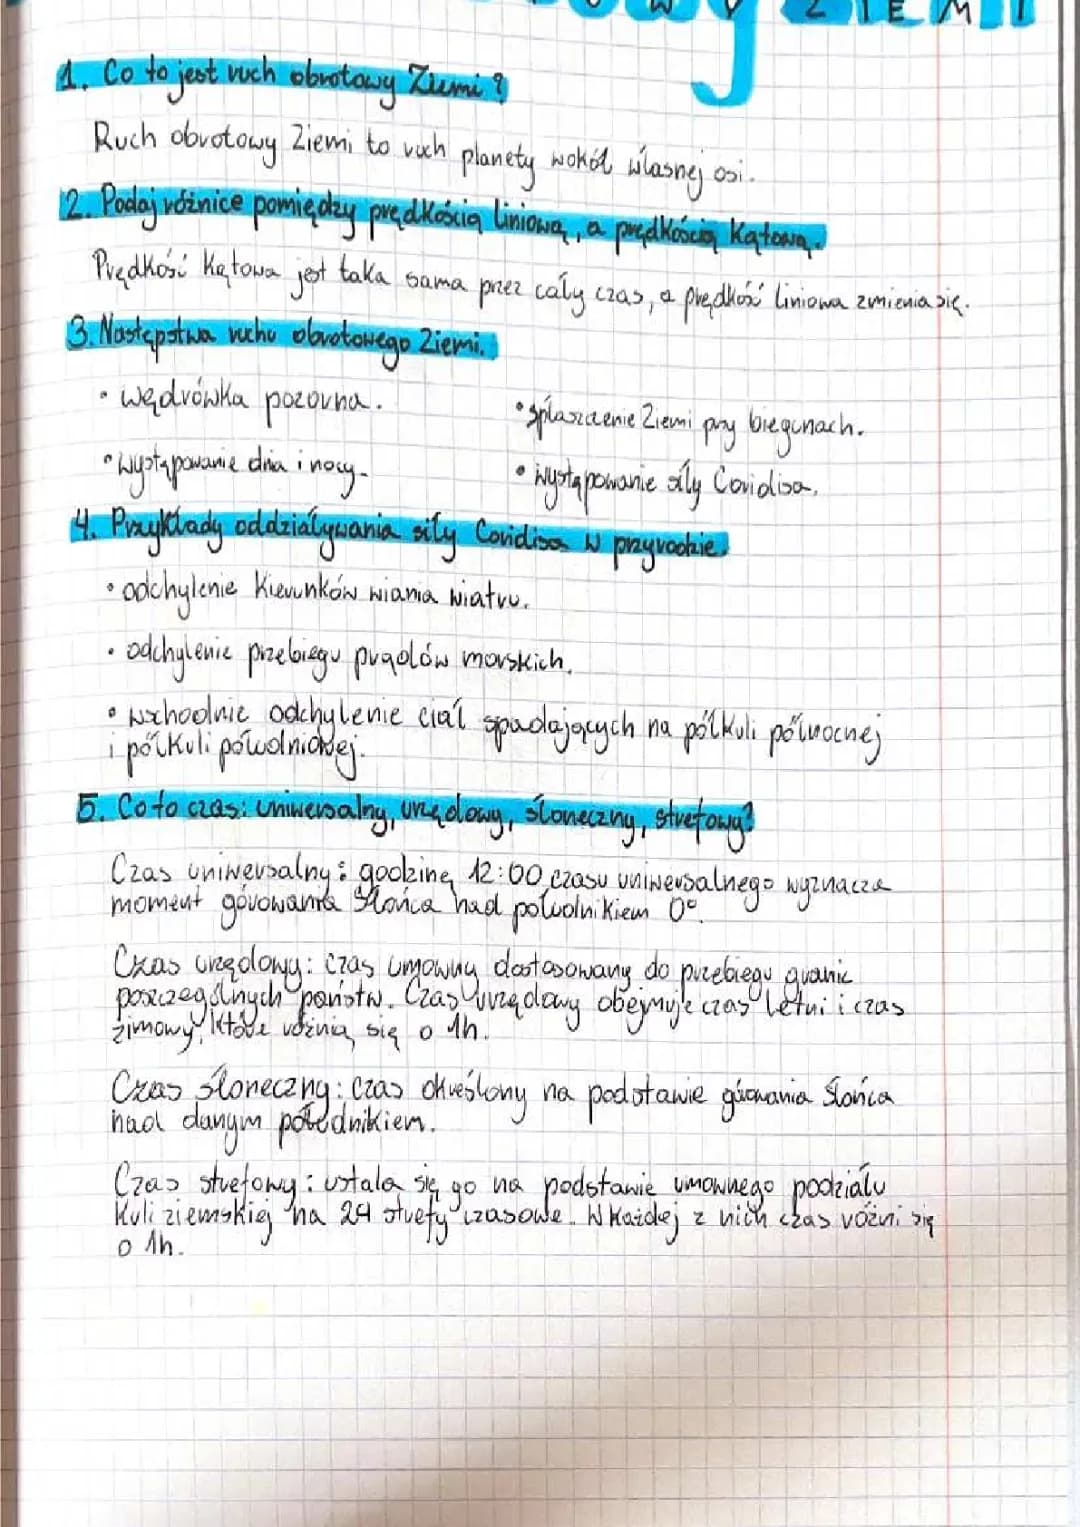 OWY ZIEMI
1. Co to jest ruch obrotowy Ziemi?
Ruch obrotowy Ziemi to ruch planety wokół własnej osi.
2. Podaj różnice pomiędzy prędkością liniową, a prędkością kątową.
Prędkość kątowa jest taka sama przez cały czas, a prędkość liniowa zmienia się.
3. Następstwa ruchu obrotowego Ziemi.
• wędrówka pozorna.
• spłaszczenie Ziemi przy biegunach.
• występowanie dnia i nocy.
• występowanie siły Coriolisa.
4. Przykłady oddziaływania siły Coriolisa w przyrodzie.
• odchylenie kierunków wiania wiatru.
• odchylenie przebiegu prądów morskich.
• wschodnie odchylenie ciał spadających na półkuli północnej
i półkuli południowej.
5. Co to czas: uniwersalny, urzędowy, słoneczny, strefowy?
Czas uniwersalny: godzinę 12:00 czasu uniwersalnego wyznacza
moment górowania Słońca nad południkiem 0°.
Czas urzędowy: czas umowny dostosowany do przebiegu granic
poszczególnych państw. Czas urzędowy obejmuje czas letni i czas
zimowy, które różnią się o 1h.
Czas słoneczny: czas określony na podstawie górowania Słońca
nad danym południkiem.
Czas strefowy: ustala się go na podstawie umownego podziału
kuli ziemskiej na 24 strefy czasowe. W każdej z nich czas różni się
o 1h.